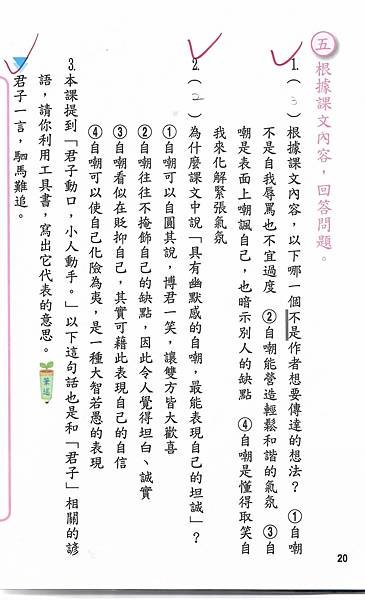 五 根據課文內容，回答問題。
1.（3）根據課文內容，以下哪一個不是作者想要傳達的想法？ ①自嘲
不是自我辱罵也不宜過度 ②自嘲能營造輕鬆和諧的氣氛 ③自
嘲是表面上嘲諷自己，也暗示別人的缺點 ④自嘲是懂得取笑自
我來化解緊張氣氛
2.（2）為什麼課文中說「具有幽默感的自嘲，最能表現自己的坦誠」？
①自嘲可以自圓其說，博君一笑，讓雙方皆大歡喜
②自嘲往往不掩飾自己的缺點，因此令人覺得坦白、誠實
③自嘲看似在貶抑自己，其實可藉此表現自己的自信
④自嘲可以使自己化險為夷，是一種大智若愚的表現
3.本課提到「君子動口，小人動手。」以下這句話也是和「君子」相關的諺
語，請你利用工具書，寫出它代表的意思。 筆述
君子一言，駟馬難追。
20